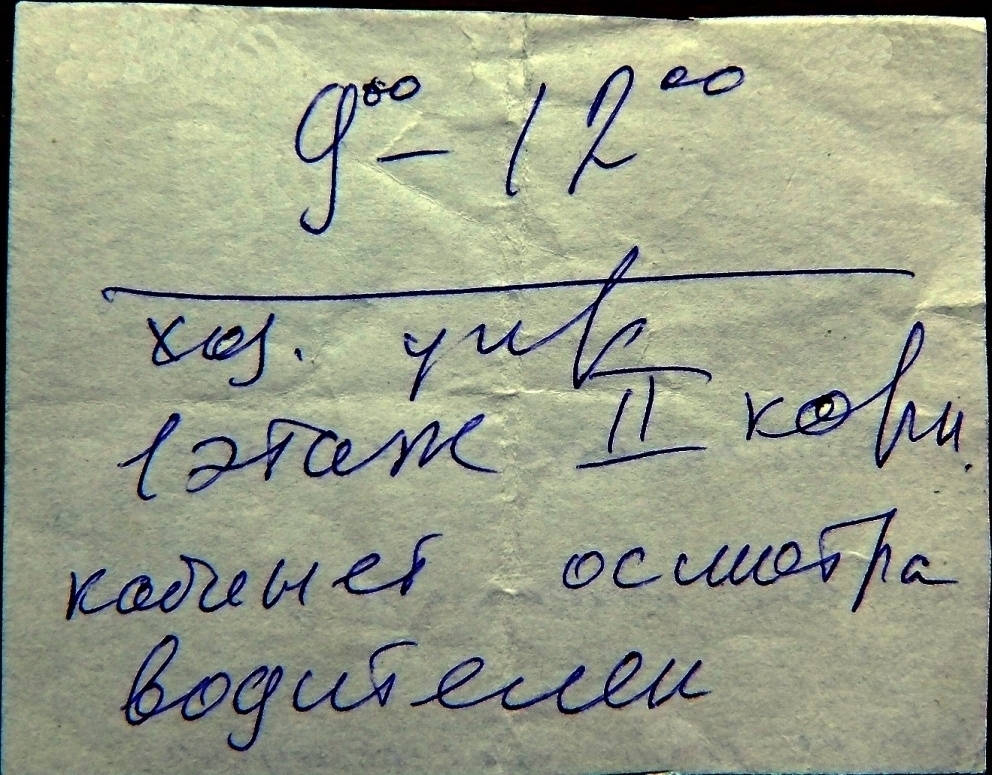 9⁰⁰ – 12⁰⁰
хоз.
1 этаж II корп.
кабинет осмотра
водителей